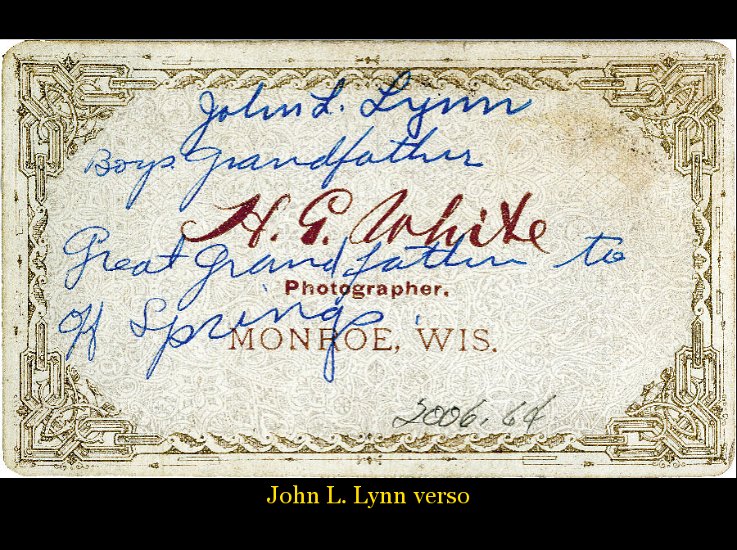 John L. Lynn
Boys Grandfather
H. G. White
Great Grandfather to
Photographer.
Off Springs.
MONROE, WIS.
2006.64
John L. Lynn verso